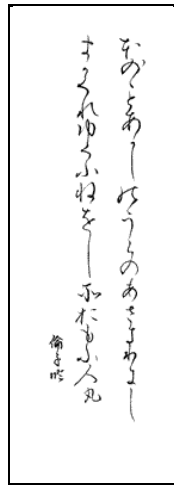 ほの〲とあかしのうらのあさきりにし
まかくれゆくふねをしそおもふ人丸